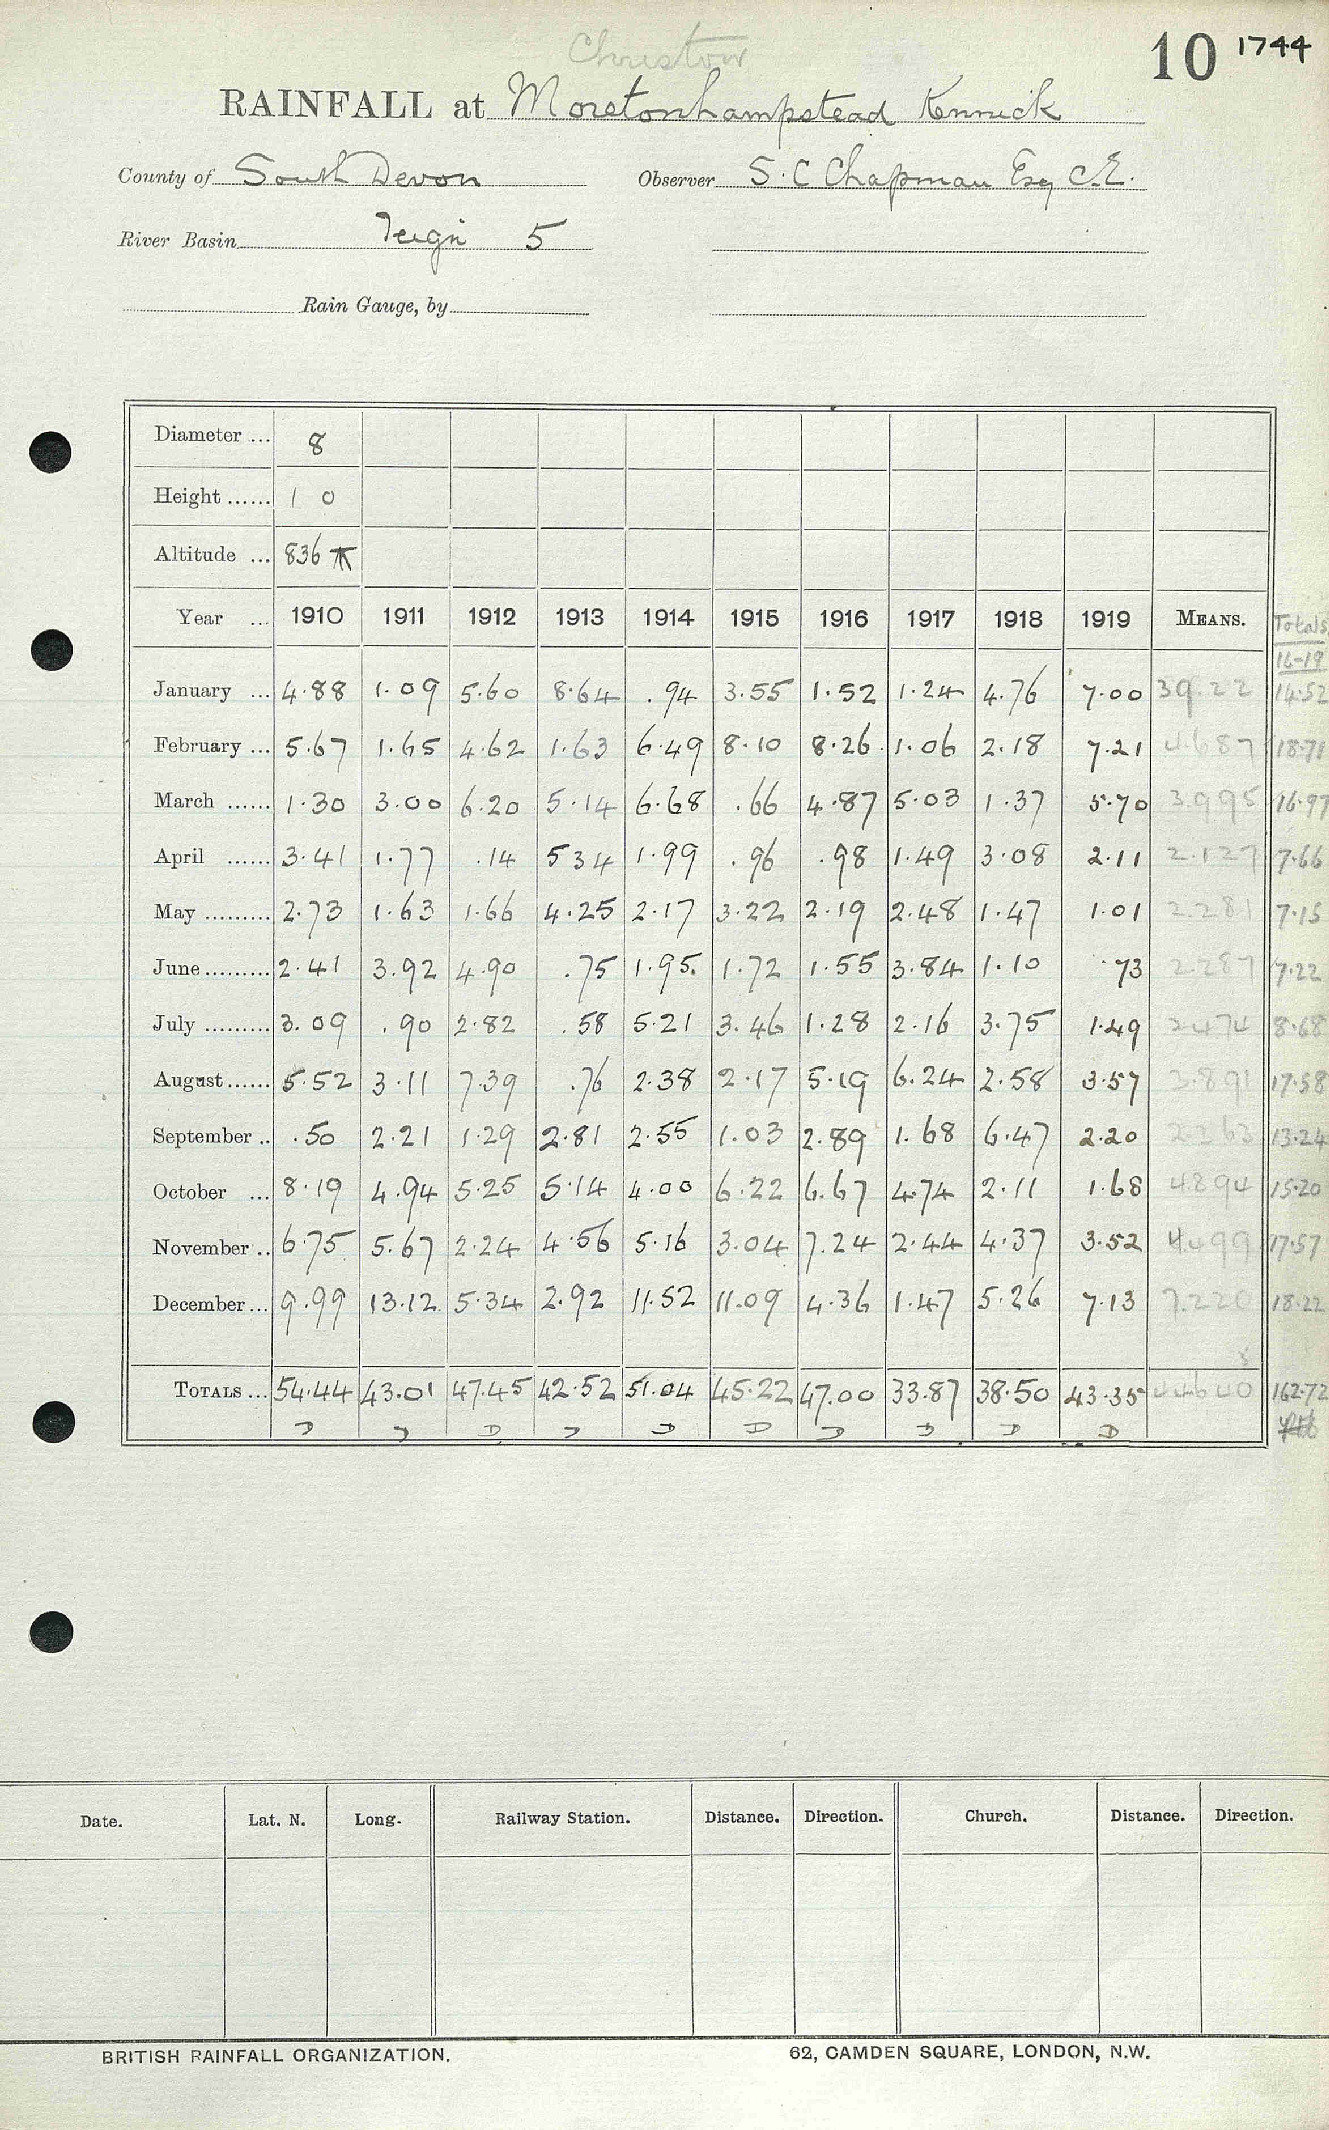 Christow
10 1744
RAINFALL at Moretonhampstead Kennick
County of South Devon Observer S. C Chapman Esq C.E.
River Basin Teign 5
Rain Gauge, by
Diameter ... 8
Height ...... 1 0
Altitude ... 836
Year ... 1910 1911 1912 1913 1914 1915 1916 1917 1918 1919 MEANS. Totals
16-19
January ... 4.88 1.09 5.60 8.64 .94 3.55 1.52 1.24 4.76 7.00 39.22 14.52
February ... 5.67 1.65 4.62 1.63 6.49 8.10 8.26 1.06 2.18 7.21 4.687 18.71
March ...... 1.30 3.00 6.20 5.14 6.68 .66 4.87 5.03 1.37 5.70 3.995 16.97
April ...... 3.41 1.77 .14 5 34 1.99 .96 .98 1.49 3.08 2.11 2.127 7.66
May ......... 2.73 1.63 1.66 4.25 2.17 3.22 2.19 2.48 1.47 1.01 2.281 7.15
June ......... 2.41 3.92 4.90 .75 1.95 1.72 1.55 3.84 1.10 .73 2.287 7.22
July ......... 3.09 .90 2.82 .58 5.21 3.46 1.28 2.16 3.75 1.49 2.474 8.68
August ...... 5.52 3.11 7.39 .76 2.38 2.17 5.19 6.24 2.58 3.57 3.891 17.58
September .. .50 2.21 1.29 2.81 2.55 1.03 2.89 1.68 6.47 2.20 2.363 13.24
October ... 8.19 4.94 5.25 5.14 4.00 6.22 6.67 4.74 2.11 1.68 4.894 15.20
November .. 6.75 5.67 2.24 4.56 5.16 3.04 7.24 2.44 4.37 3.52 4.499 17.57
December ... 9.99 13.12 5.34 2.92 11.52 11.09 4.36 1.47 5.26 7.13 7.220 18.22
TOTALS ... 54.44 43.01 47.45 42.52 51.04 45.22 47.00 33.87 38.50 43.35 44640 162.72
D D D D D D D D D D
Date. Lat. N. Long. Railway Station. Distance. Direction. Church. Distance. Direction.
BRITISH RAINFALL ORGANIZATION. 62, CAMDEN SQUARE, LONDON, N.W.